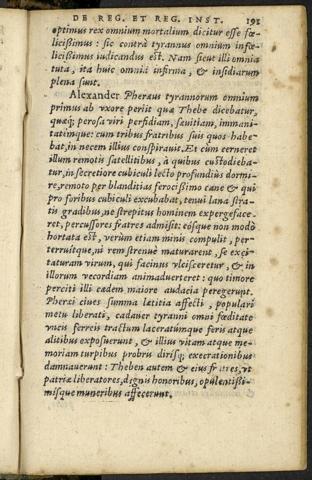 DE REG. ET REG. INST. 191
optimus rex omnium mortalium dicitur esse fœ-
licißimus: sic contrà tyrannus omnium infœ-
licißimus iudicandus est. Nam sicut illi omnia
tuta, ita huic omnia infirma, & insidiarum
plena sunt.
Alexander Pheræus tyrannorum omnium
primus ab vxore periit quæ Thebe dicebatur,
quæq; perosa viri perfidiam, sæuitiam, immani-
tatémque: cum tribus fratribus suis quos habe-
bat, in necem illius conspirauit. Et cùm cerneret
illum remotis satellitibus, à quibus custodieba-
tur, in secretiore cubiculi lecto profundiùs dormi-
re, remoto per blanditias ferocißimo cane & qui
pro foribus cubiculi excubabat, tenui lana stra-
tis gradibus, ne strepitus hominem expergeface-
ret, percussores fratres admisit: eósque non modò
hortata est, verùm etiam minis compulit, per-
terruitque, ni rem strenuè maturarent, se exci-
taturam virum, qui facinus vlcisceretur, & in
illorum vecordiam animaduerteret: quo timore
perciti illi eadem maiore audacia peregerunt.
Pheræi eius summa lætitia affecti, populari
metu liberati, cadauer tyranni omni fœditate
vncis ferreis tractum laceratúmque feris atque
alitibus exposuerunt, & illius vitam atque me-
moriam turpibus probris dirisq; execrationibus
damnauerunt: Theben autem & eius fratres, vt
patriæ liberatores, dignis honoribus, opulentißi-
mísque muneribus affecerunt.